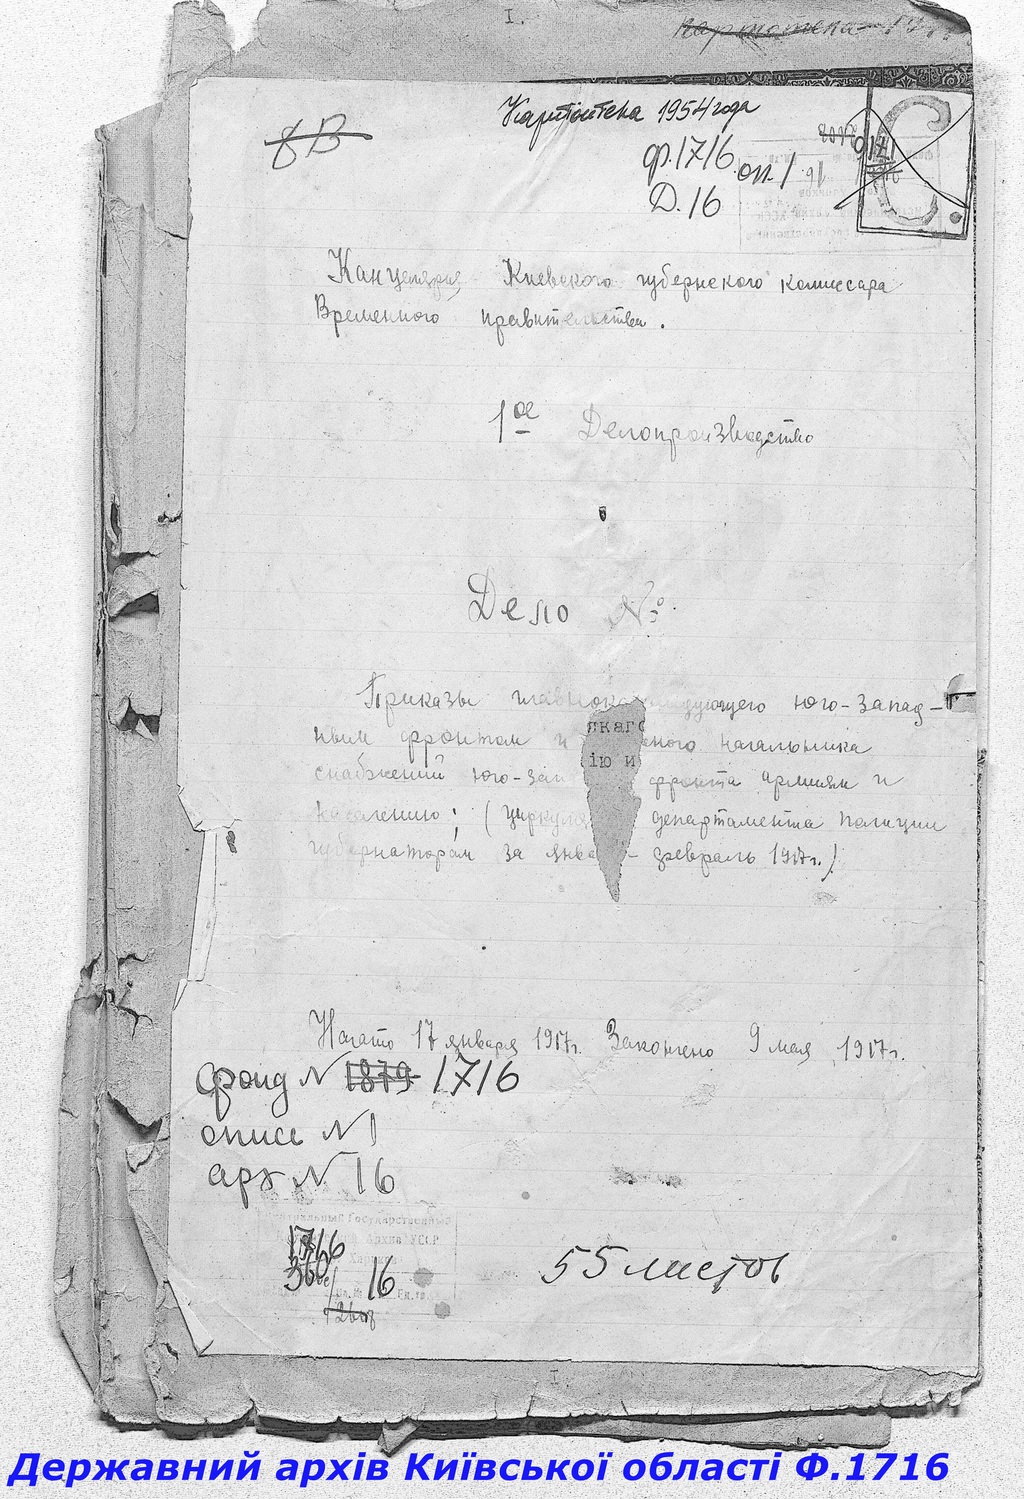 I.
Картотека
8В
Картотека 1954 года
ф.1716 оп.1
Д.16
Канцелярия Киевского губернского комиссара
Временного правительства.
1ое Делопроизводство
Дело №
Приказы главнокомандующего юго-запад-
ным фронтом и ного начальника
якаго
снабжений юго-зап фронта армиям и
ію и
населению; (циркуля департамента полиции
губернаторам за янва - февраль 1917г.)
Начато 17 января 1917г. Закончено 9 мая 1917г.
фонд N 1879 1716
опись N 1
арх N 16
Государственный
Архив УССР
16
55 листов
I.
Державний архів Київської області Ф.1716